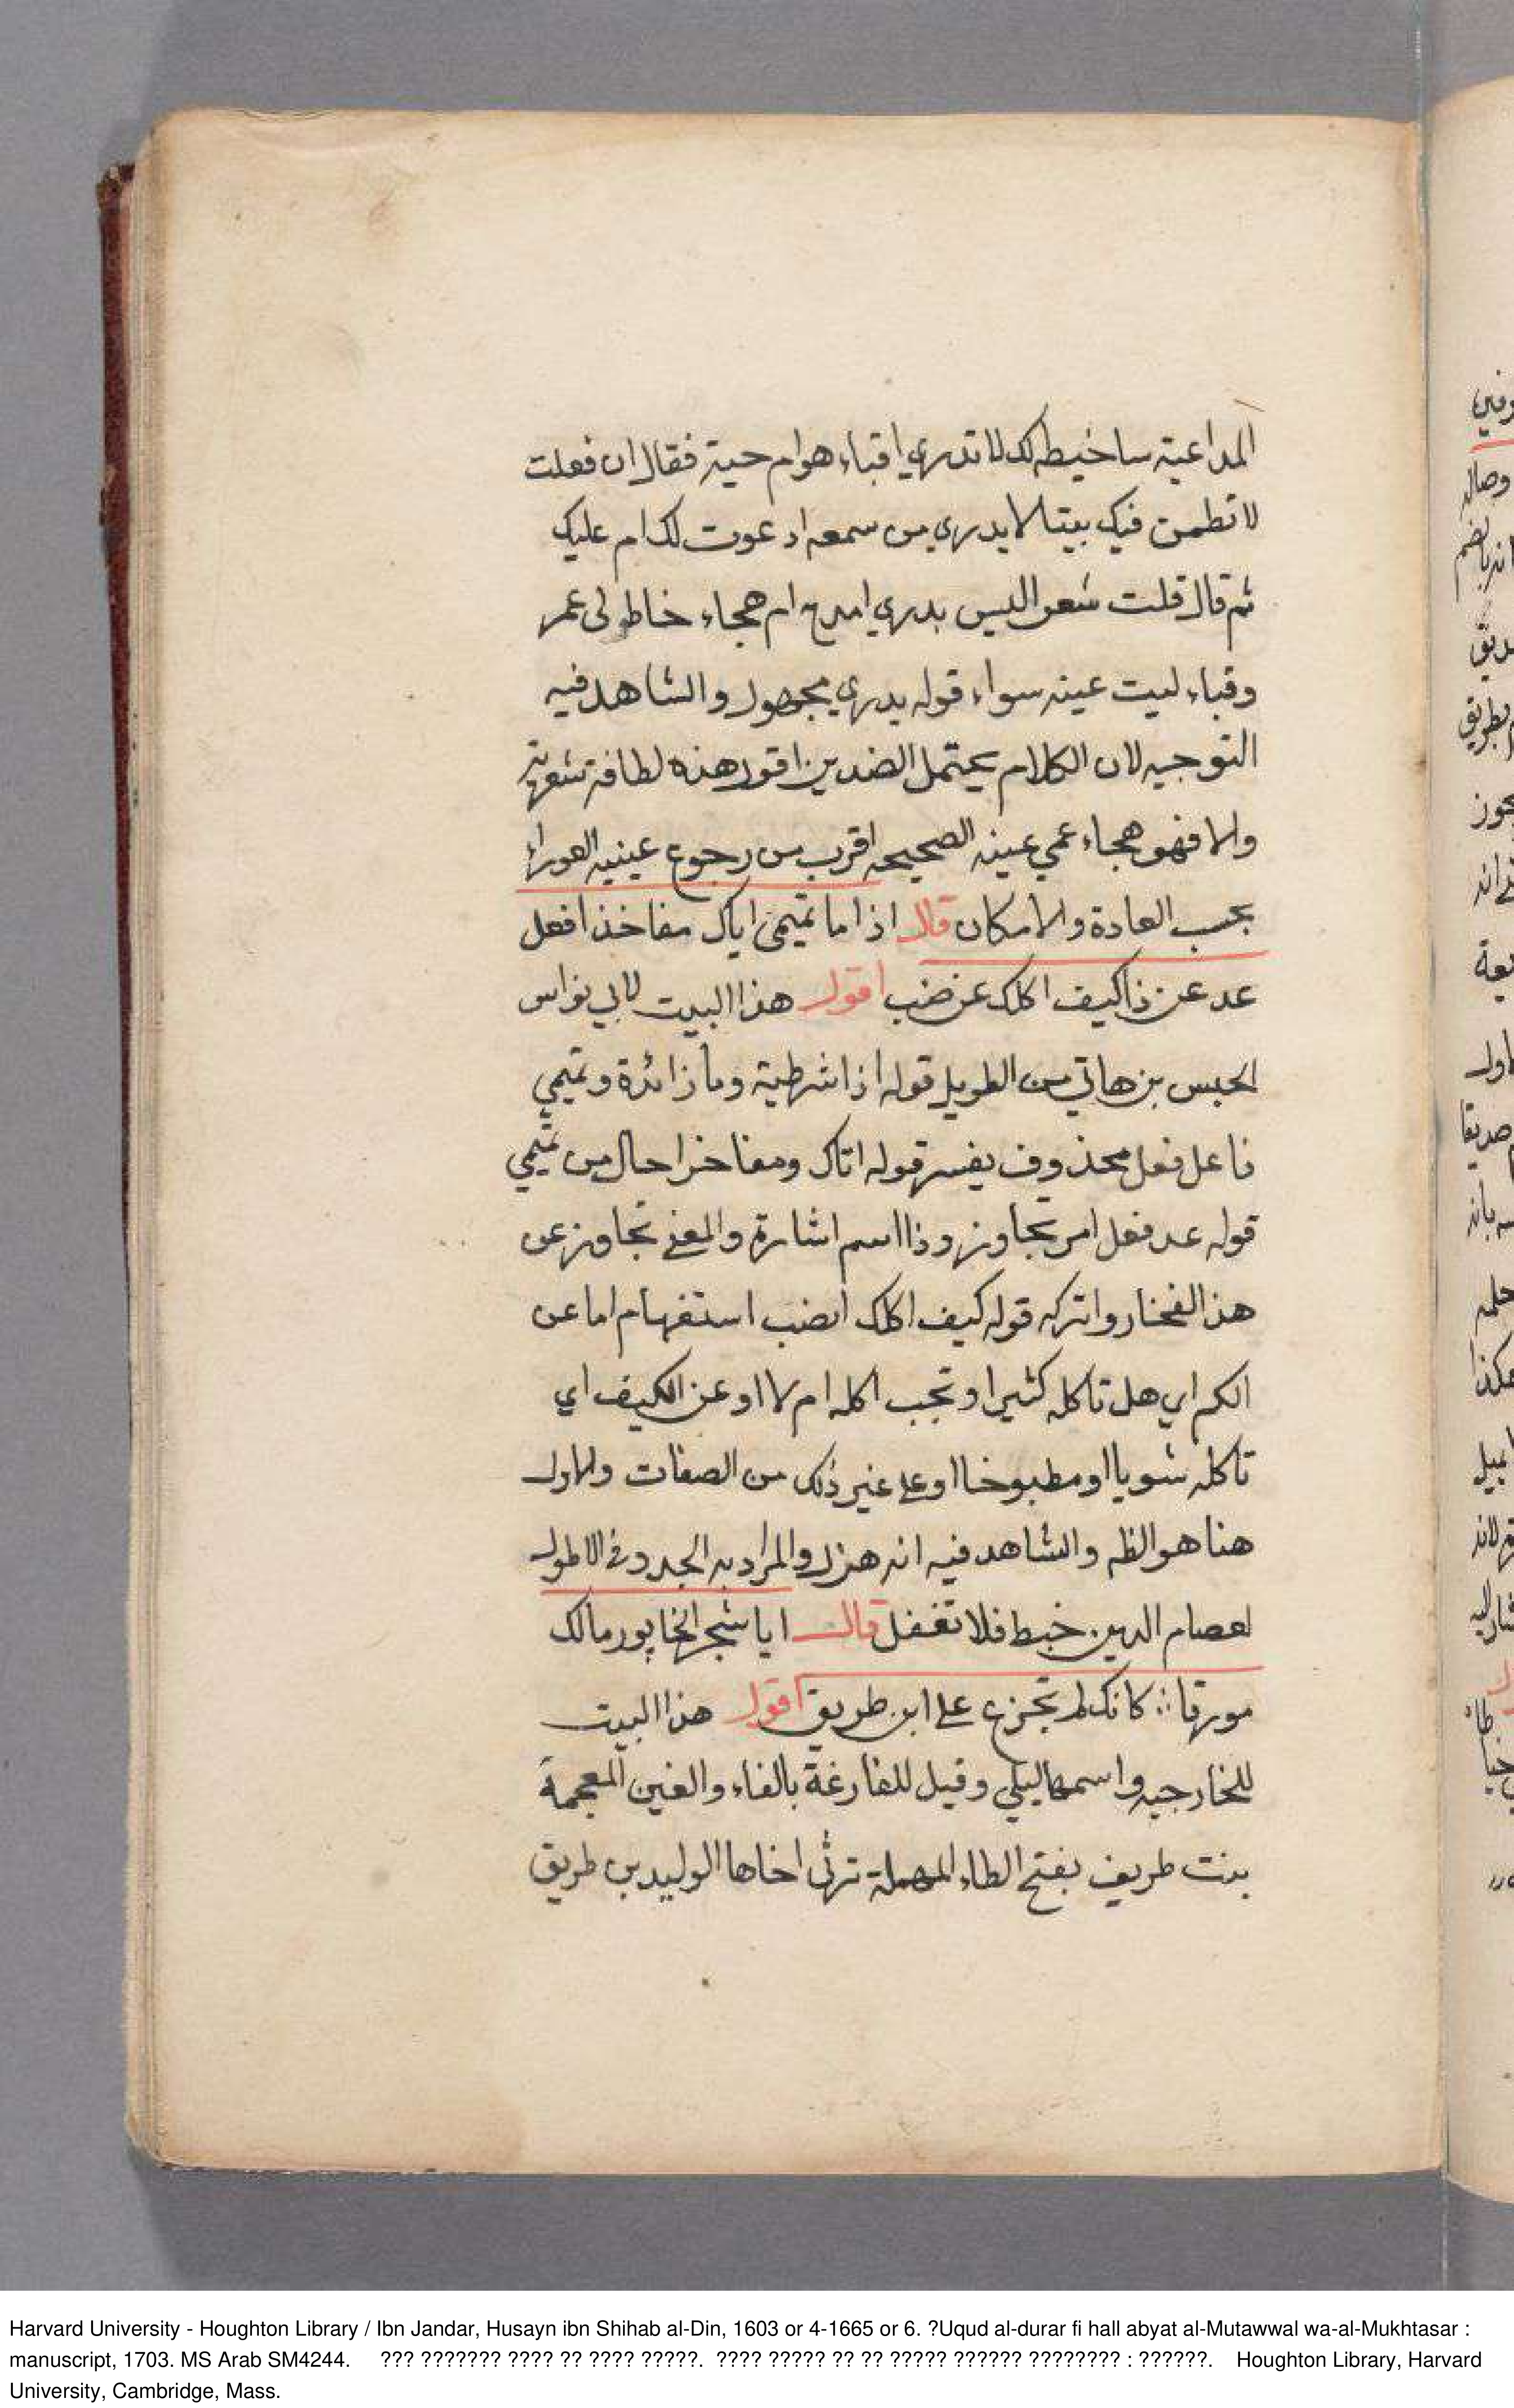 المداعبة ساخيطه لك لا تدري اقباء هو ام جبة فقال ان فعلت
لانظمن فيك بيتا لا يدري من سمعه ادعوت لك ام عليك
ثم قال قلت شعرا ليس يدري امديح ام هجاء خاط لى عمر
وقباء ليت عينه سواء قوله يدري مجهول والشاهد فيه
التوجيه لان الكلام يحتمل الضدين اقول هذه لطافة شعرية
والا فهو هجاء عمي عينه الصحيحه اقرب من رجوع عينيه العوراء
بحسب العادة والامكان قال اذا ما تميمى اياك مفاخذا فعل
عد عن ذا كيف اكلك عن ضب اقول هذا البيت لابي نواس
الحبس بن هاني من الطويل قوله اذا شرطية وما زائدة وتميمي
فاعل فعل محذوف يفسر قوله اتاك ومفاخرا حال من تميمي
قوله عد فعل امر تجاوز وذا اسم اشارة والمعنى تجاوز عن
هذ الفخار واتركه قوله كيف اكلك الضب استفهام اما عن
الكم اي هل تاكله كثيرا وتحب اكله ام لا او عن الكيف اي
تاكله شويا او مطبوخا او على غير ذلك من الصفات والاول
هنا هو الظه والشاهد فيه انه هزل والمراد به الجد وفي الاطول
لعصام الدين خبط فلا تغفل قال ايا شجر الخابور مالك
مورقا ∴ كانك لم تجزع على ابن طريق اقول هذا البيت
للخارجيه واسمها ليلي وقيل للفارغة بالفاء والغين المعجمة
بنت طريف بفتح الطاء المهملة ترثى اخاها الوليد بن طريق
وصاله
بطريق
يجوز
اول
صديقا
Harvard University - Houghton Library / Ibn Jandar, Husayn ibn Shihab al-Din, 1603 or 4-1665 or 6. ?Uqud al-durar fi hall abyat al-Mutawwal wa-al-Mukhtasar :
manuscript, 1703. MS Arab SM4244. ??? ??????? ???? ?? ???? ?????. ???? ????? ?? ?? ????? ?????? ???????? : ??????. Houghton Library, Harvard
University, Cambridge, Mass.